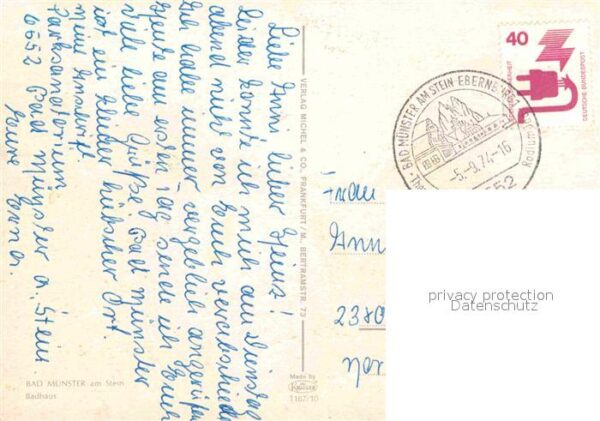 Liebe Anni, lieber Heinz!
Leider konnte ich mich am Dienstag
abend nicht von Euch verabschieden
Ich habe immer vergeblich angerufen
Heute am ersten Tag sende ich Euch
viele liebe Grüße. Bad Münster
ist ein kleiner hübscher Ort.
Meine Anschrift
Parksanatorium
6552 Bad Münster a. Stein
Eure
Erna.
BAD MÜNSTER am Stein
Badhaus
VERLAG MICHEL & CO., FRANKFURT/M. BERTRAMSTR. 73
Made by
1167/10
BAD MÜNSTER AM STEIN EBERNBURG
-5.-9.74-16
40
DEUTSCHE BUNDESPOST
Frau
Ann
2380
privacy protection
Datenschutz